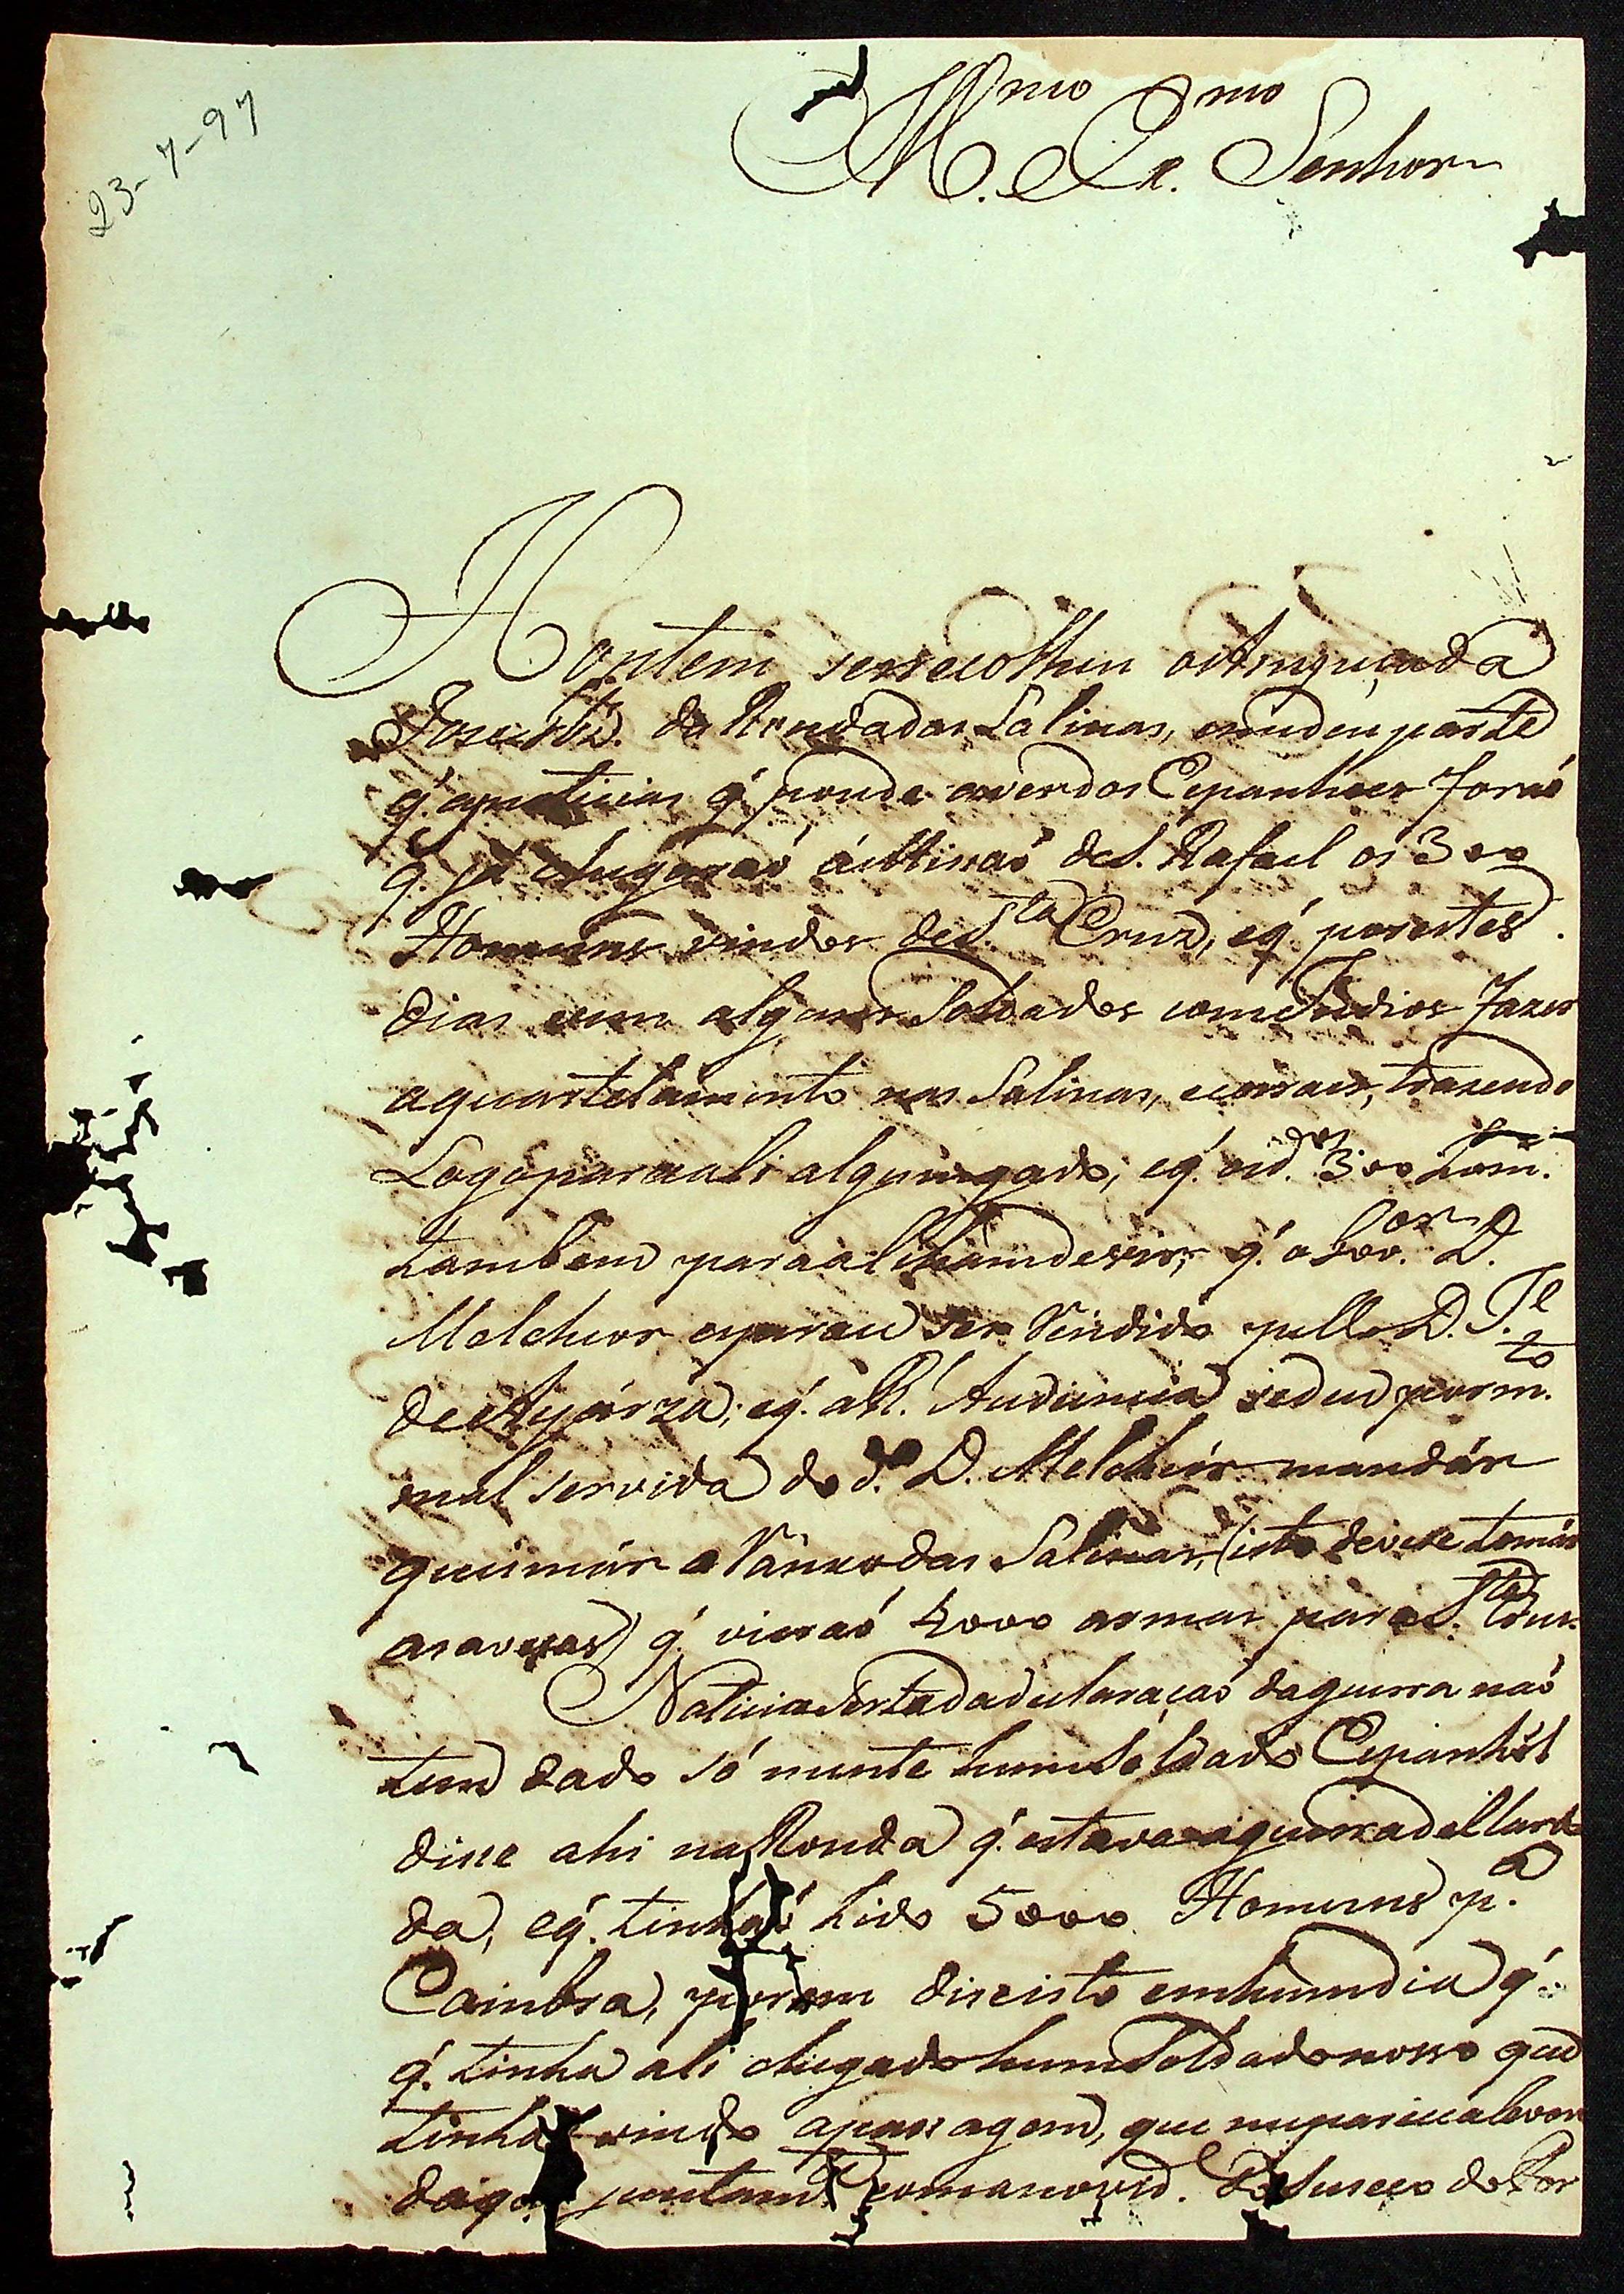 23-7-97
Ill.mo Ex.mo Senhor
Hontem serrecolheu oAnspuçada
Joze da Rondadas Salinas, deu parte
q' as noticias q' poude aver dos Espanhoes foraó
q. já chegaraó á Missaó de S. Rafael os 300
Homens vindos de S.ta Cruz, eq' por estes
dias vem alguns Soldados com Indios fazer
aquartelamento nas Salinas, e currais, trazendo
Logo para ali algum gado; eq. os d.os 300 hom.
tambem para ali hám de vir; q. o Gov.or D.
Melchior espera ser Rendido pello D. J.e
de Ayarza; eq. a R. Audiencia sedeo por m.to
mal servida do d.o D. Melchior mandár
queimár o Ranxo das Salinas, (isto devese tomár
as avessas) q. vieraó 4000 armas para S.ta Cruz.
Noticia Serta da declaraçaó da guerra naó
tem dado só mente hum Soldado Espanhól
disse ahi na Ronda q. estava a guerra declara
da, eq. tinhaó hido 5000 Homens p.a
Coimbra, porem disse isto em hum dia q.
q. tinha ali chegado hum Soldado nosso que
tinha vindo a passagem, que me parece a levou
daqui juntam.te com a novid. Do Susseso do For